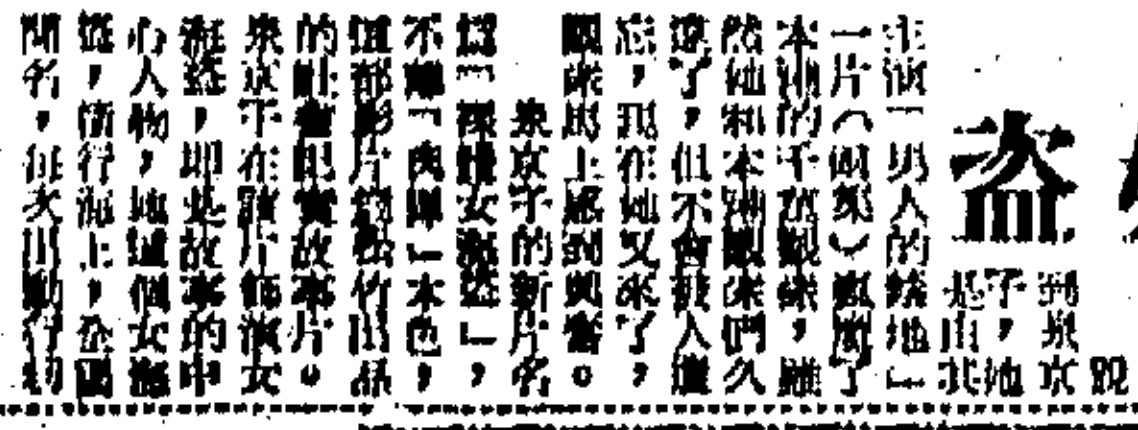 盜
說
到泉京
子，她
是由其
主演「男人的綠地」
一片（頭集）瘋魔了
本洲的千萬觀衆，雖
然她和本洲觀衆們久
違了，但不會被人遺
忘，現在她又來了，
觀衆馬上感到興奮。
泉京子的新片名
爲「裸體女海盜」，
不離「肉彈」本色，
這部影片爲松竹出品
的社會現實故事片。
泉京子在該片飾演女
海盜，即是故事的中
心人物，她這個女海
盜，橫行海上，全國
聞名，每次出動行刧